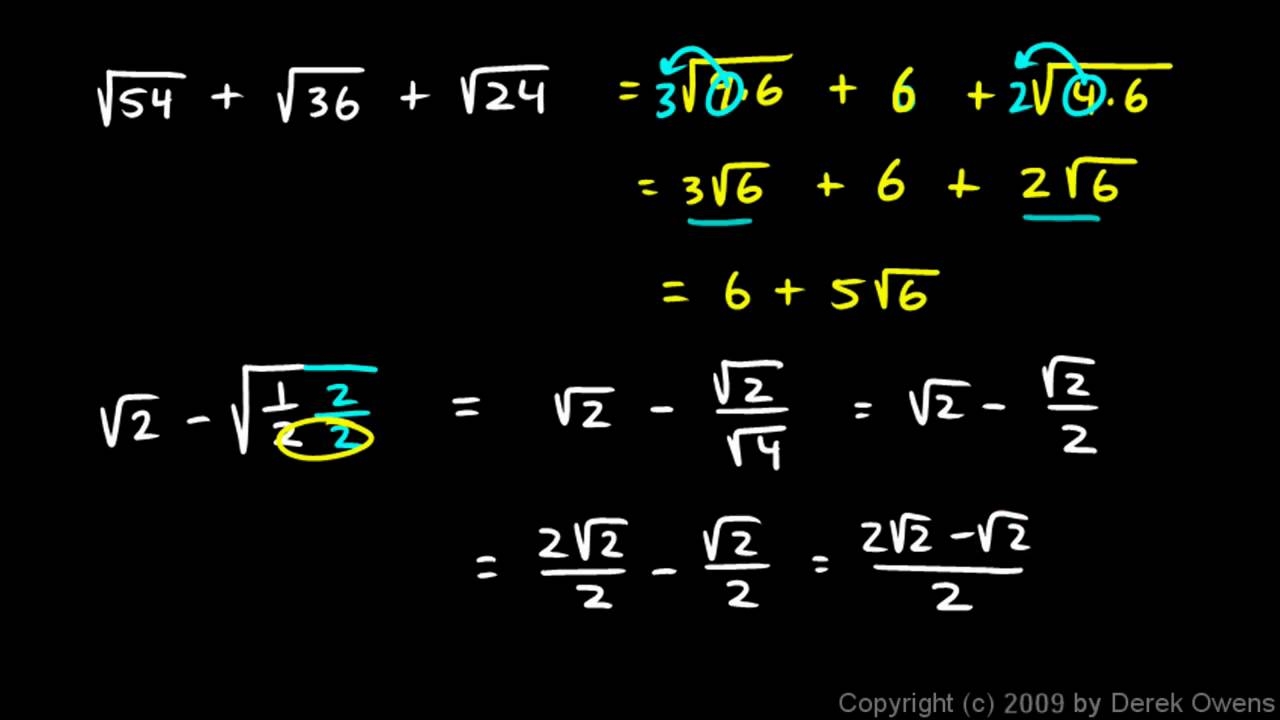 √54 + √36 + √24 = 3√9·6 + 6 + 2√4·6
= 3√6 + 6 + 2√6
= 6 + 5√6
√2 - √(1/2 2/2) = √2 - √2/√4 = √2 - √2/2
= 2√2/2 - √2/2 = (2√2 - √2)/2
Copyright (c) 2009 by Derek Owens